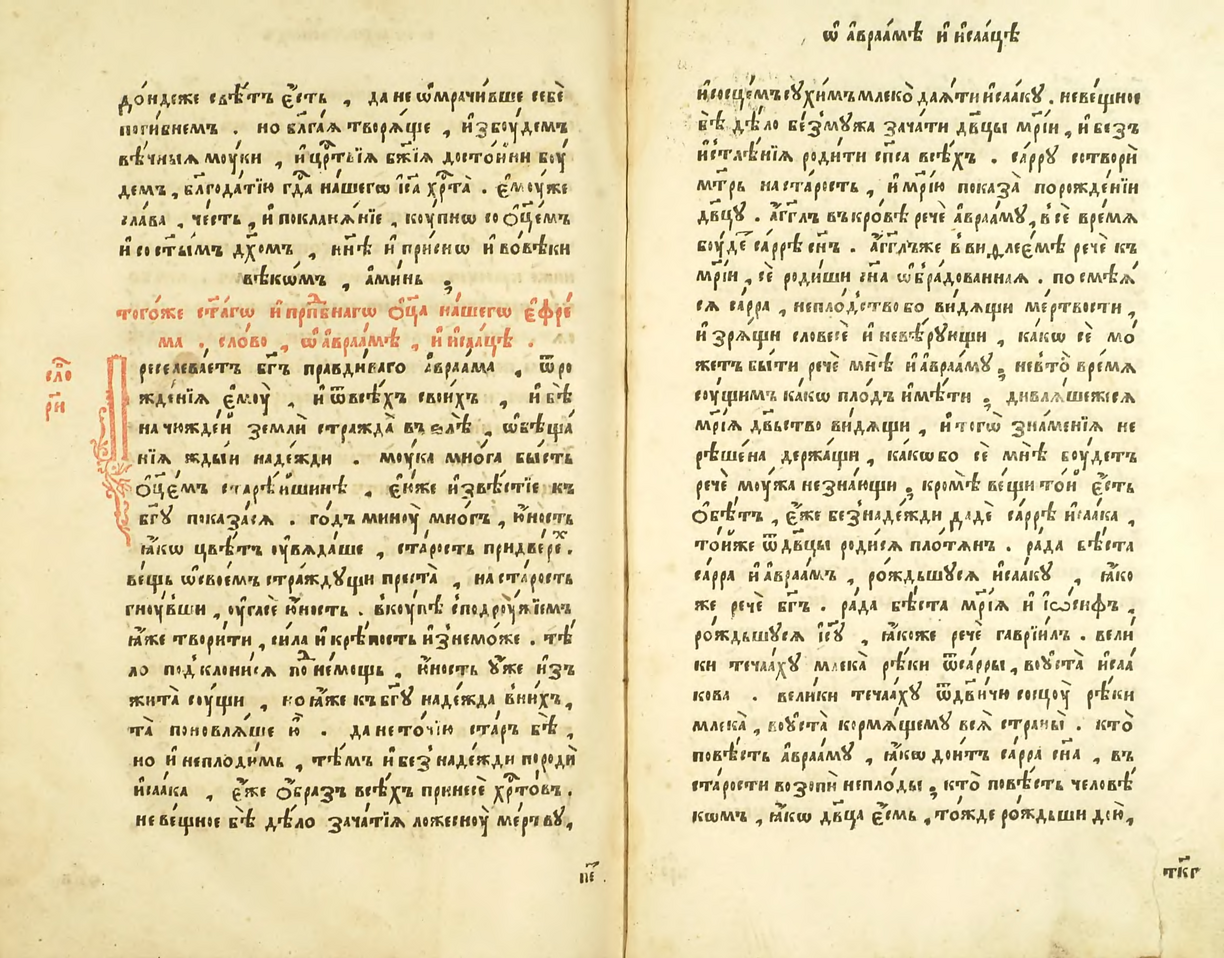 до́ндеже свѣ́тъ є҆́сть , да не ѡ҆мрачи́вше себѐ
поги́бнемъ . но бл҃га́ѧ творѧ́ще , и҆збꙋ́демъ
вѣ́чныѧ мꙋ́ки , и҆ црⷭ҇твїѧ бж҃їѧ досто́йни бꙋ́
демъ , бл҃года́тїю гдⷭ҇а на́шегѡ і҆с҃а хрⷭ҇та̀ . є҆мꙋ́же
сла́ва , че́сть , и҆ поклонѧ́нїе , кꙋ́пнѡ со ѻ҆ц҃е́мъ
и҆ со ст҃ы́мъ дх҃омъ , нн҃ѣ и҆ при́снѡ и҆ во́вѣки
вѣкѡ́мъ , а҆ми́нь ;
тогѡ́же ст҃а́гѡ и҆ прпⷣбнагѡ ѻ҆ц҃а на́шегѡ є҆фре́
ма . сло́во , ѡ҆ а҆враа́мѣ , и҆ и҆саа́цѣ .
сло́
ри҃
Преселѧ́етъ бг҃ъ пра́вдиваго а҆враа́ма , ѿ ро
жде́нїѧ є҆мꙋ̀ , и҆ ѿ всѣ́хъ свои́хъ , и҆ бѣ̀
на чꙋжде́й землѝ стражда̀ въ ѕлѣ̀ , ѡ҆бѣща́
нїѧ жды́и наде́жди . мꙋ́ка мно́га бы́сть
ѻ҆ц҃е́мъ старѣ́йшинѣ , є҆ѝже и҆звѣ́стїе къ
бг҃ꙋ показа́сѧ . го́дъ минꙋ̀ мно́гъ , ю҆́ность
ꙗ҆́кѡ цвѣ́тъ ᲂу҆вѧда́ше , ста́рость придвере́х .
ве́щь ѡ҆свое́мъ стра́ждꙋщи преста̀ , на ста́рость
гнꙋ́вши , ᲂу҆гасѐ ю҆́ность . вкꙋ́пѣ сподрꙋ́жїемъ
ꙗ҆́же твори́ти , си́ла и҆ крѣ́пость и҆знемо́же . тѣ́
ло подклони́сѧ поⷣ не́мощь , ю҆́ность ᲂу҆́же и҆з̾
жита̀ сꙋ́щи , но ꙗ҆́же къ бг҃ꙋ наде́жда в ни́хъ ,
та̀ поновлѧ́ше ю҆̀ . да не то́чїю ста́ръ бѣ̀ ,
но и҆ непло́димь , тѣ́мъ и҆ без̾ наде́жди породѝ
и҆саа́ка , є҆́же ѻ҆́бразъ всѣ́хъ принесѐ хрⷭ҇то́въ .
не ве́щное бѣ̀ дѣ́ло зача́тїѧ ложеснꙋ̀ ме́ртвꙋ ,
пе҃
ѡ҆ а҆враа́мѣ и҆ и҆саа́цѣ
и҆ сосце́мъ сꙋхи́мъ млеко̀ даѧ́ти и҆саа́кꙋ . неве́щное
бѣ̀ дѣ́ло без̾ мꙋ́жа зача́ти дв҃цы мр҃і́и , и҆ без̾
и҆стлѣ́нїѧ роди́ти сп҃са всѣ́хъ . са́ррꙋ сотворѝ
мт҃рь на ста́рость , и҆ мр҃і́ю показа̀ порожде́нїи
дв҃цꙋ . а҆́гг҃лъ въ кро́вѣ речѐ а҆враа́мꙋ , в сѐ вре́мѧ
бꙋ́деⷮ са́ррѣ сн҃ъ . а҆́гг҃лъ же в виѳлее́мѣ речѐ къ
мр҃і́и , сѐ роди́ши сн҃а ѡ҆бра́дованнаѧ . посмѣѧ́
сѧ са́рра , непло́дство бо ви́дѧщи ме́ртвости ,
и҆ зрѧ́щи словесѐ и҆ невѣ́рꙋющи , ка́кѡ сѐ мо́
жетъ бы́ти речѐ мнѣ̀ и҆ а҆враа́мꙋ ; не в то̀ вре́мѧ
сꙋ́щимъ ка́кѡ пло́дъ и҆мѣ́ти ; дивлѧ́шежесѧ
мр҃і́ѧ дв҃ьство ви́дѧщи , и҆ тогѡ̀ зна́менїѧ не
рѣше́на держа́щи , ка́кѡ бо сѐ мнѣ̀ бꙋ́детъ
речѐ мꙋ́жа не зна́ющи ; кромѣ̀ ве́щи то́и є҆́сть
ѻ҆бѣ́тъ , є҆́же без̾ наде́жди дадѐ са́ррѣ и҆саа́ка ,
то́йже ѿ дв҃цы роди́сѧ пло́тѧнъ . ра́да бѣ́ста
са́рра и҆ а҆враа́мъ , ро́ждьшꙋсѧ и҆саа́кꙋ , ꙗ҆́ко
же речѐ бг҃ъ . ра́да бѣ́ста мр҃і́ѧ и҆ і҆ѡ́сифъ ,
ро́ждьшꙋсѧ і҆с҃ꙋ , ꙗ҆́коже речѐ гаврїи́лъ . вели́
ки теча́ахꙋ млека̀ рѣ́ки ѿ са́рры , во ᲂу҆ста̀ и҆саа́
кова . вели́ки теча́ахꙋ ѿ дв҃и́чю сосцꙋ̀ рѣ́ки
млека̀ , во ᲂу҆ста̀ кормѧ́щемꙋ всѧ̀ страны̀ . кто̀
повѣ́сть а҆враа́мꙋ , ꙗ҆́кѡ дои́тъ са́рра сн҃а , въ
ста́рости возопѝ непло́ды ; кто̀ повѣ́сть человѣ́
кѡмъ , ꙗ҆́кѡ дв҃ца є҆́смь , то́жде ро́ждьши дою̀ ,
тк҃г